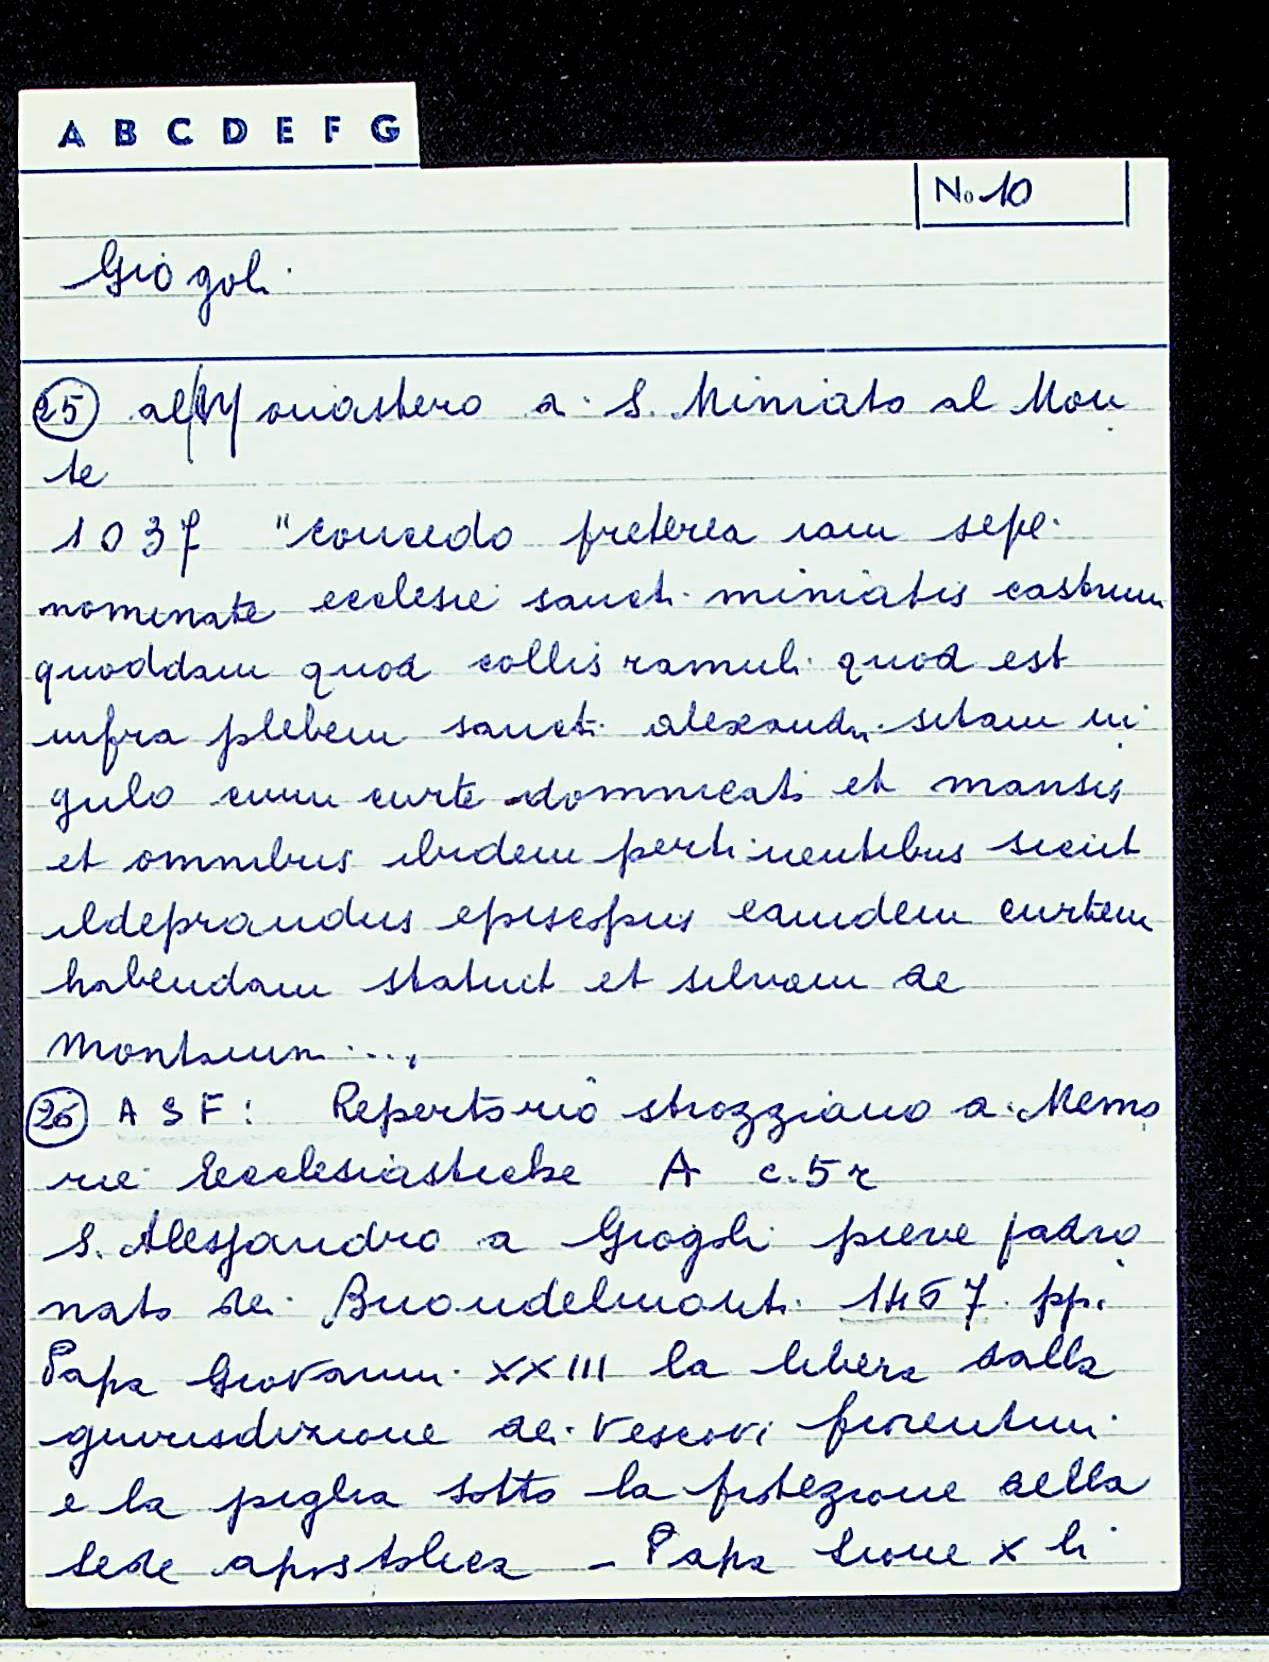 A B C D E F G
No 10
Giogoli
25 al Monastero di S. Miniato al Mon
te
1037 "concedo preterea iam sepe
nominate ecclesie sancti miniatis castrum
quoddam quod collis ramuli quod est
infra plebem sancti alexandri sitam in
gulo cum curte domnicati et mansis
et omnibus ibidem pertinentibus sicut
ildeprandus episcopus eamdem curtem
habendam statuit et silvam de
montanin...,
26 ASF: Repertorio strozziano di Memo
rie Ecclesiastiche A c.5r
S. Alessandro a Giogoli pieve padro
nato dei Buondelmonti 1467 pp.
Papa Giovanni XXIII la libera dalla
giurisdizione dei Vescovi fiorentini
e la piglia sotto la protezione della
sede apostolica - Papa Leone X li